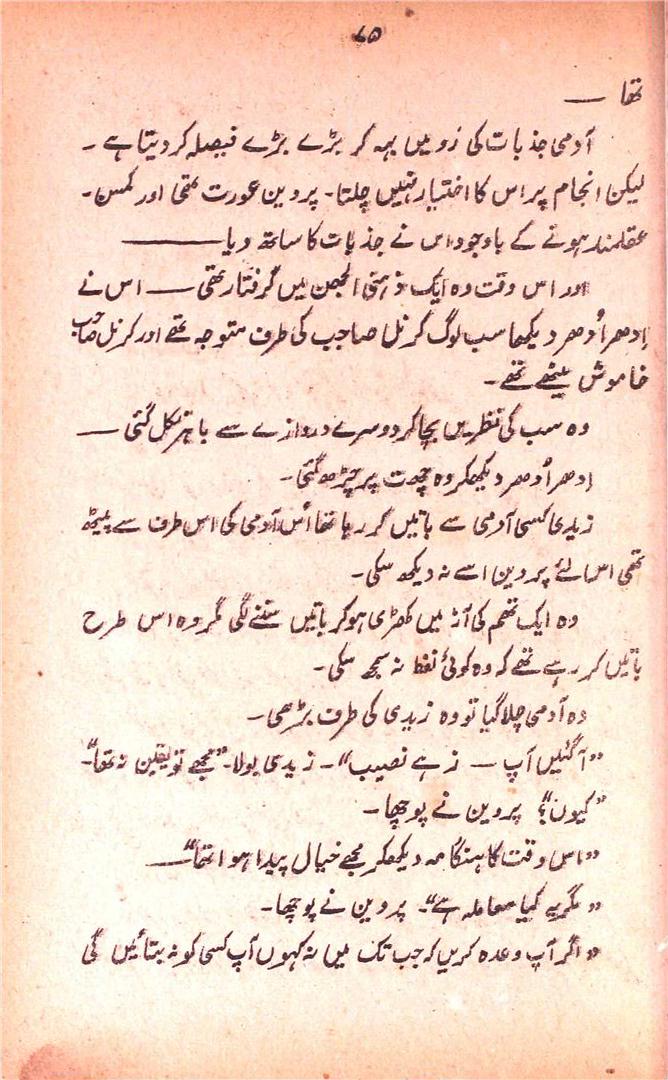 ۷۵
تھا ——
آدمی جذبات کی رو میں بہہ کر بڑے بڑے فیصلہ کر دیتا ہے۔
لیکن انجام پر اس کا اختیار نہیں چلتا۔ پروین عورت تھی اور کمسن۔
عقلمند ہونے کے باوجود اس نے جذبات کا ساتھ دیا ————
اور اس وقت وہ ایک ذہنی الجھن میں گرفتار تھی —— اس نے
اِدھر اُدھر دیکھا سب لوگ کرنل صاحب کی طرف متوجہ تھے اور کرنل صاحب
خاموش بیٹھے تھے۔
وہ سب کی نظریں بچا کر دوسرے دروازے سے باہر نکل گئی ——
اِدھر اُدھر دیکھکر وہ چھت پر چڑھ گئی۔
زیدی کسی آدمی سے باتیں کر رہا تھا اُس آدمی کی اس طرف سے پیٹھ
تھی اس لئے پروین اسے نہ دیکھ سکی۔
وہ ایک تھم کی آڑ میں کھڑی ہو کر باتیں سننے لگی مگر وہ اس طرح
باتیں کر رہے تھے کہ وہ کوئی لفظ نہ سمجھ سکی۔
وہ آدمی چلا گیا تو وہ زیدی کی طرف بڑھی۔
”آگئیں آپ — زہے نصیب“۔ زیدی بولا۔ ”مجھے تو یقین نہ تھا“۔
”کیوں“؟ پروین نے پوچھا۔
”اس وقت کا ہنگامہ دیکھکر مجھے خیال پیدا ہوا تھا“——
”مگر یہ کیا معاملہ ہے“۔ پروین نے پوچھا۔
”اگر آپ وعدہ کریں کہ جب تک میں نہ کہوں آپ کسی کو نہ بتائیں گی